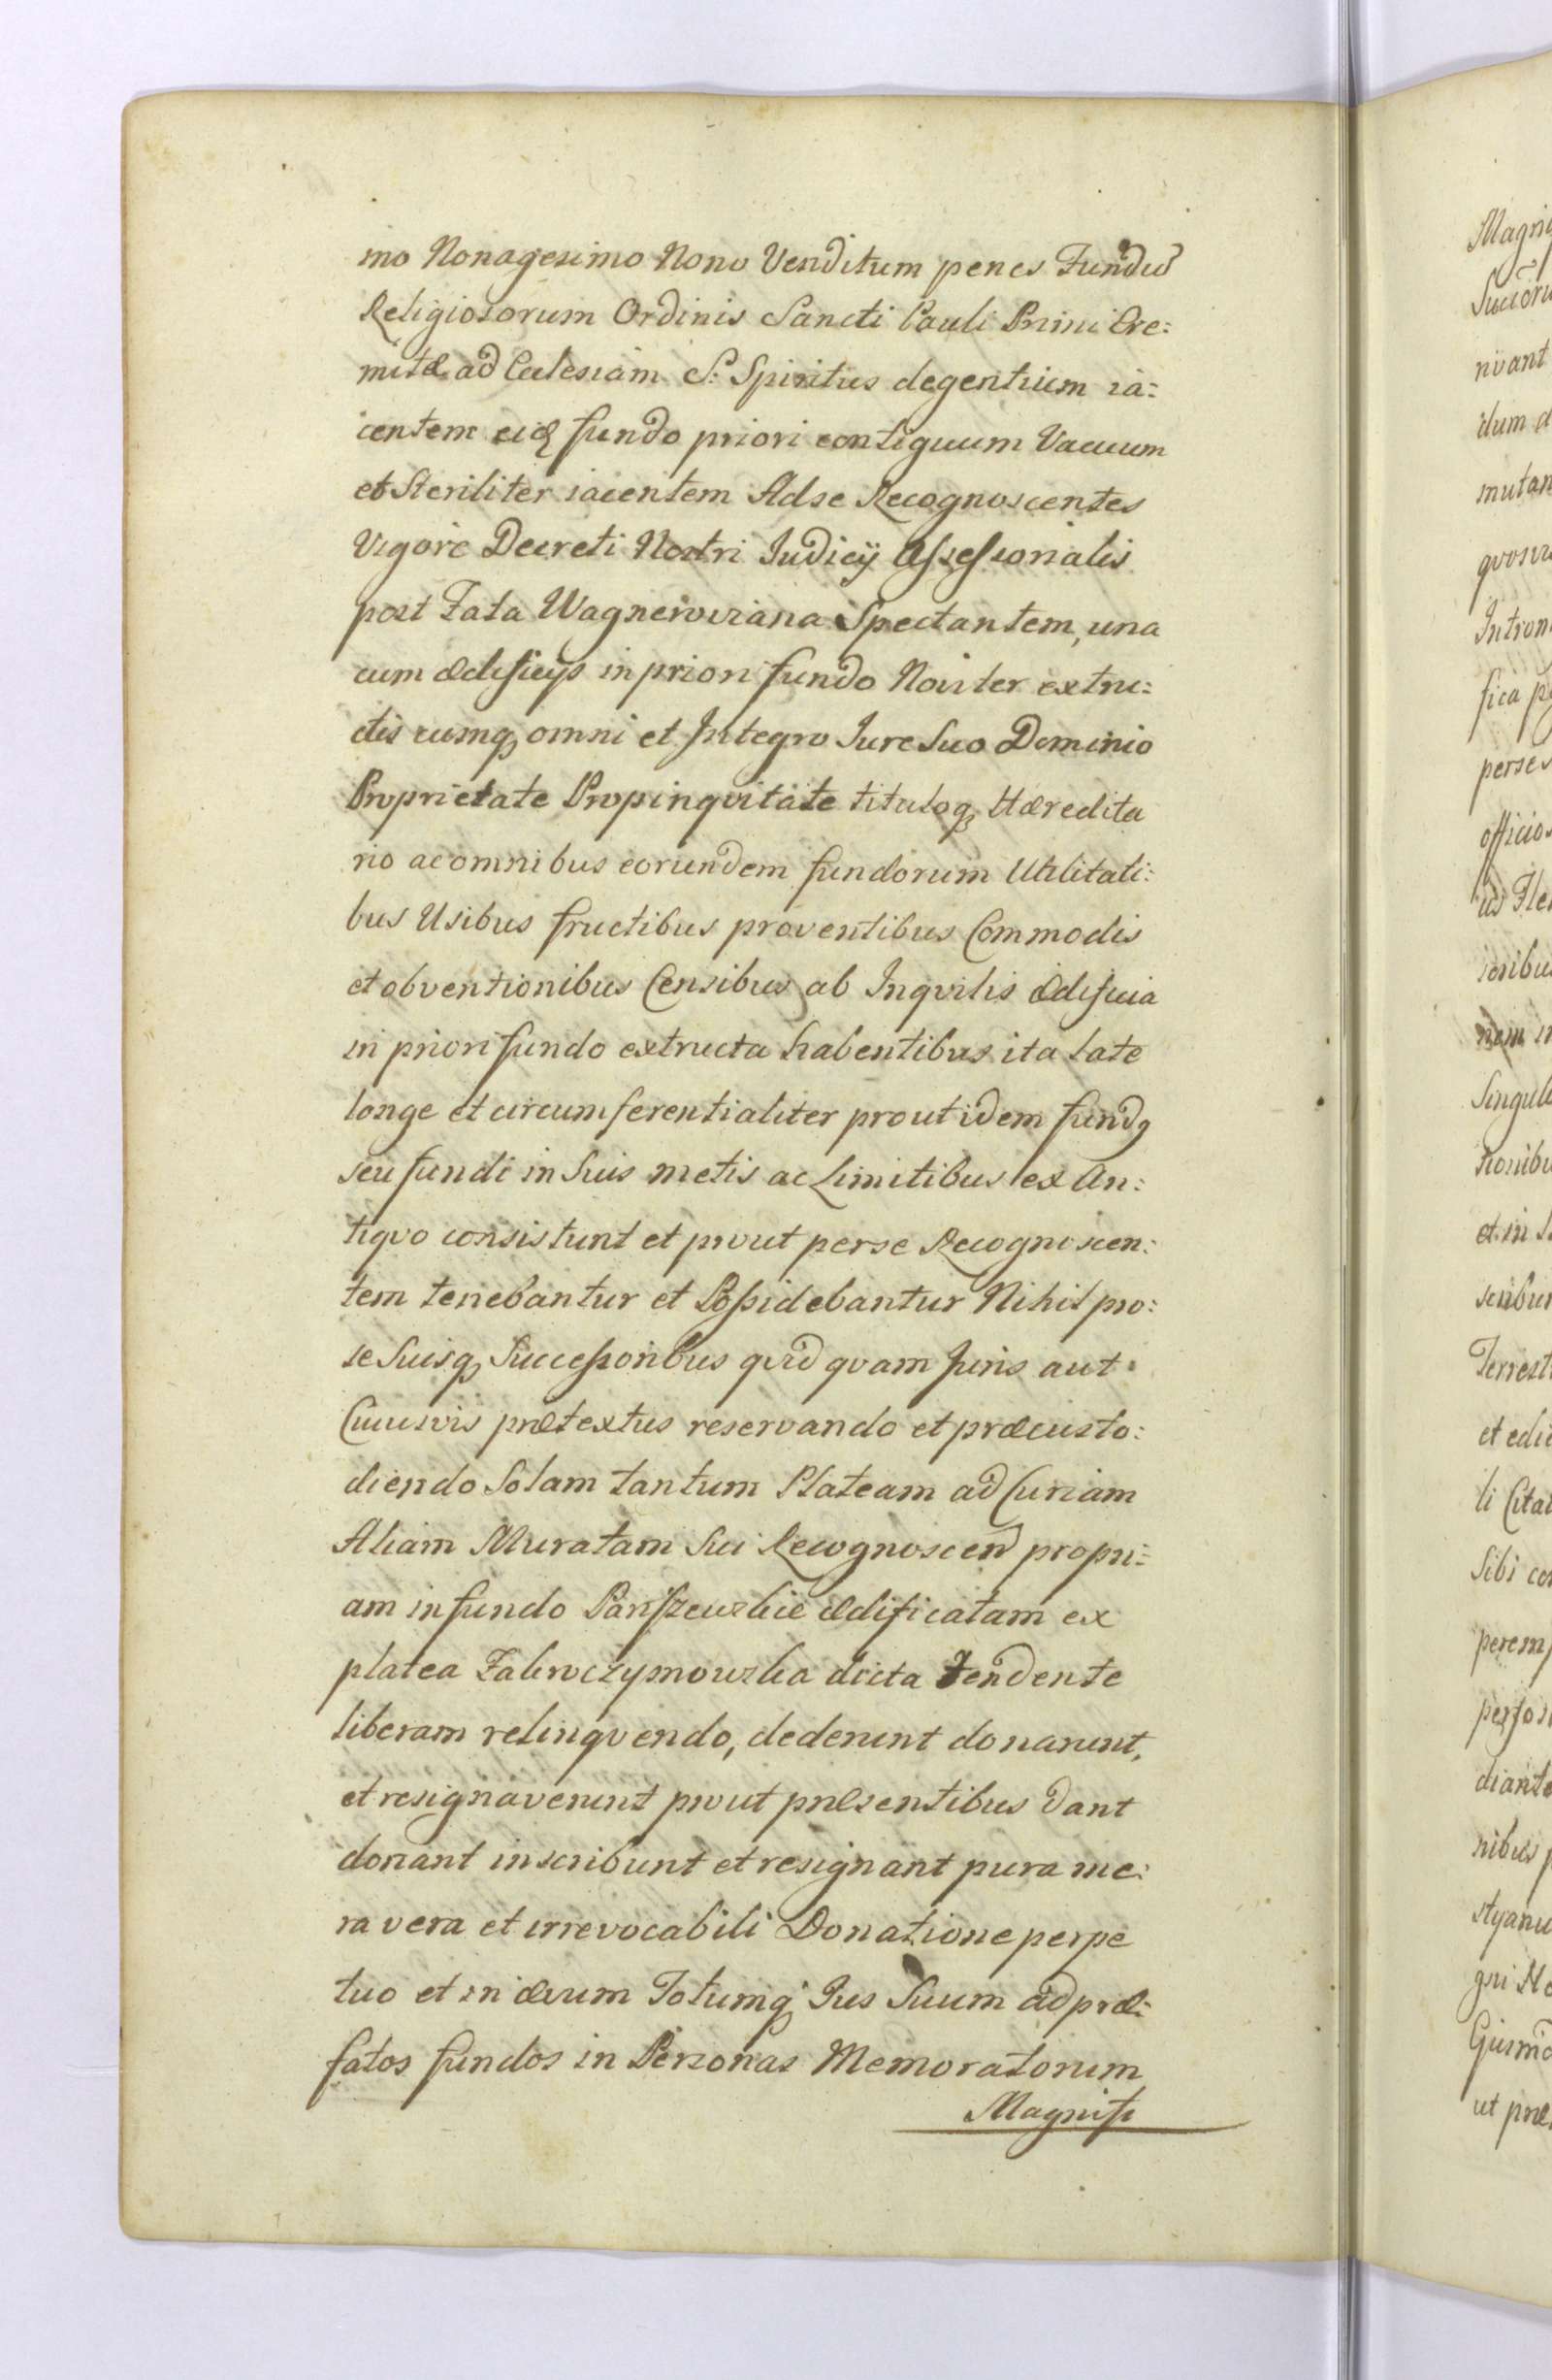 mo Nonagesimo Nono Venditum penes Fundū
Religiosorum Ordinis Sancti Pauli Primi Ere:
mitæ ad Ecclesiam S: Spiritus degentium ia:
centem eiq̢ fundo priori contiguum Vacuum
et Steriliter iacentem Adse Recognoscentes
Vigore Decreti Nostri Iudicÿ Assessorialis
post Fata Wagnerowiana Spectantem, una
cum ædificÿs in priori fundo Noviter extru:
ctis cumq̢ omni et Integro Iure Suo Dominio
Proprietate Propinqvitate tituloq̢ Hæredita
rio ac omnibus eorundem fundorum Utilitati:
bus Usibus fructibus proventibus Commodis
et obventionibus Censibus ab Inqvilis ædificia
in priori fundo extructa habentibus ita late
longe et circumferentialiter prout idem fundq
seu fundi in Suis metis ac Limitibus ex An:
tiqvo consistunt et prout perse Recognoscen:
tem tenebantur et Possidebantur Nihil pro:
se Suisq̢ Successoribus qvid qvam Juris aut
Cuiusvis prætextus reservando et præcusto:
diendo Solam tantum Plateam ad Curiam
Aliam Muratam Sui Recognoscen propri:
am in fundo Pariszewskie ædificatam ex
platea Zakroczymowska dicta tendente
liberam relinqvendo, dederunt donarunt,
et resignaverunt prout præsentibus dant
donant inscribunt et resignant pura me:
ra vera et irrevocabili Donatione perpe
tuo et in ævum Totumq̢ Ius Suum ad præ:
fatos fundos in Personas Memoratorum
Magnifi
Magni
nuant
dum
mutan
qvosvi
Intron
fica
perse
officio
Singul
et in
Terrest
et edi
li Cita
Sibi co
perem
diante
nibus
ut præ